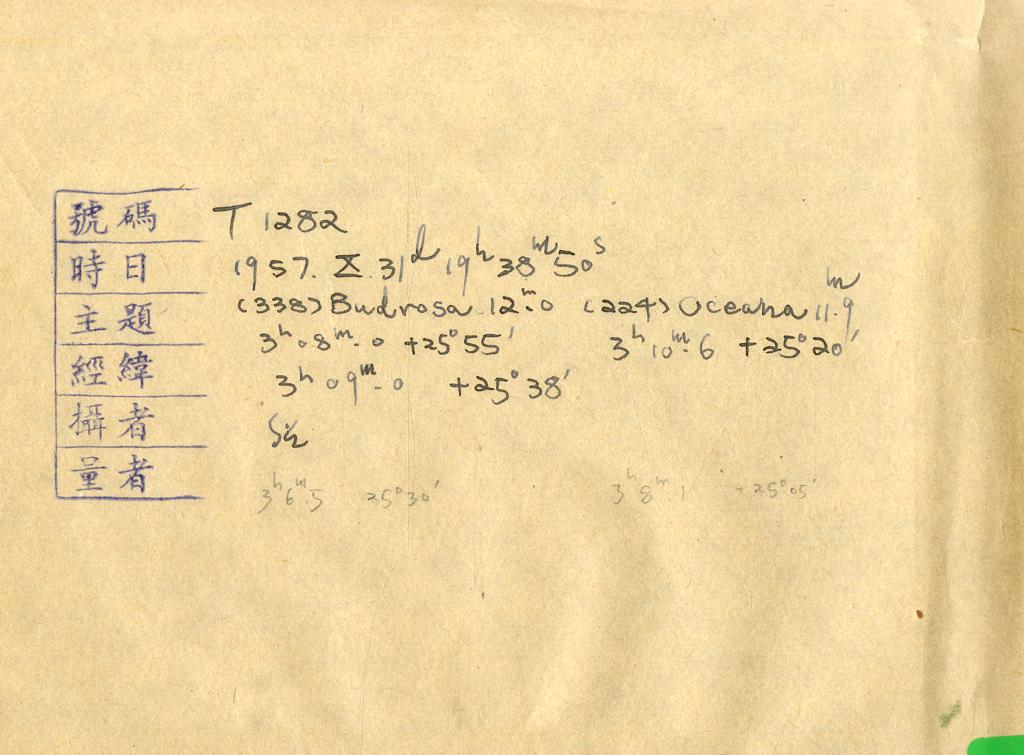 號碼 T 1282
時日 1957. X. 31d 19h 38m 50s
主題 (338) Budrosa 12m.0 (224) Oceana 11m.9
3h 08m.0 +25°55′ 3h 10m.6 +25°20′
經緯 3h 09m.0 +25°38′
攝者
量者 3h 6m.5 25°30′ 3h 8m.1 +25°05′